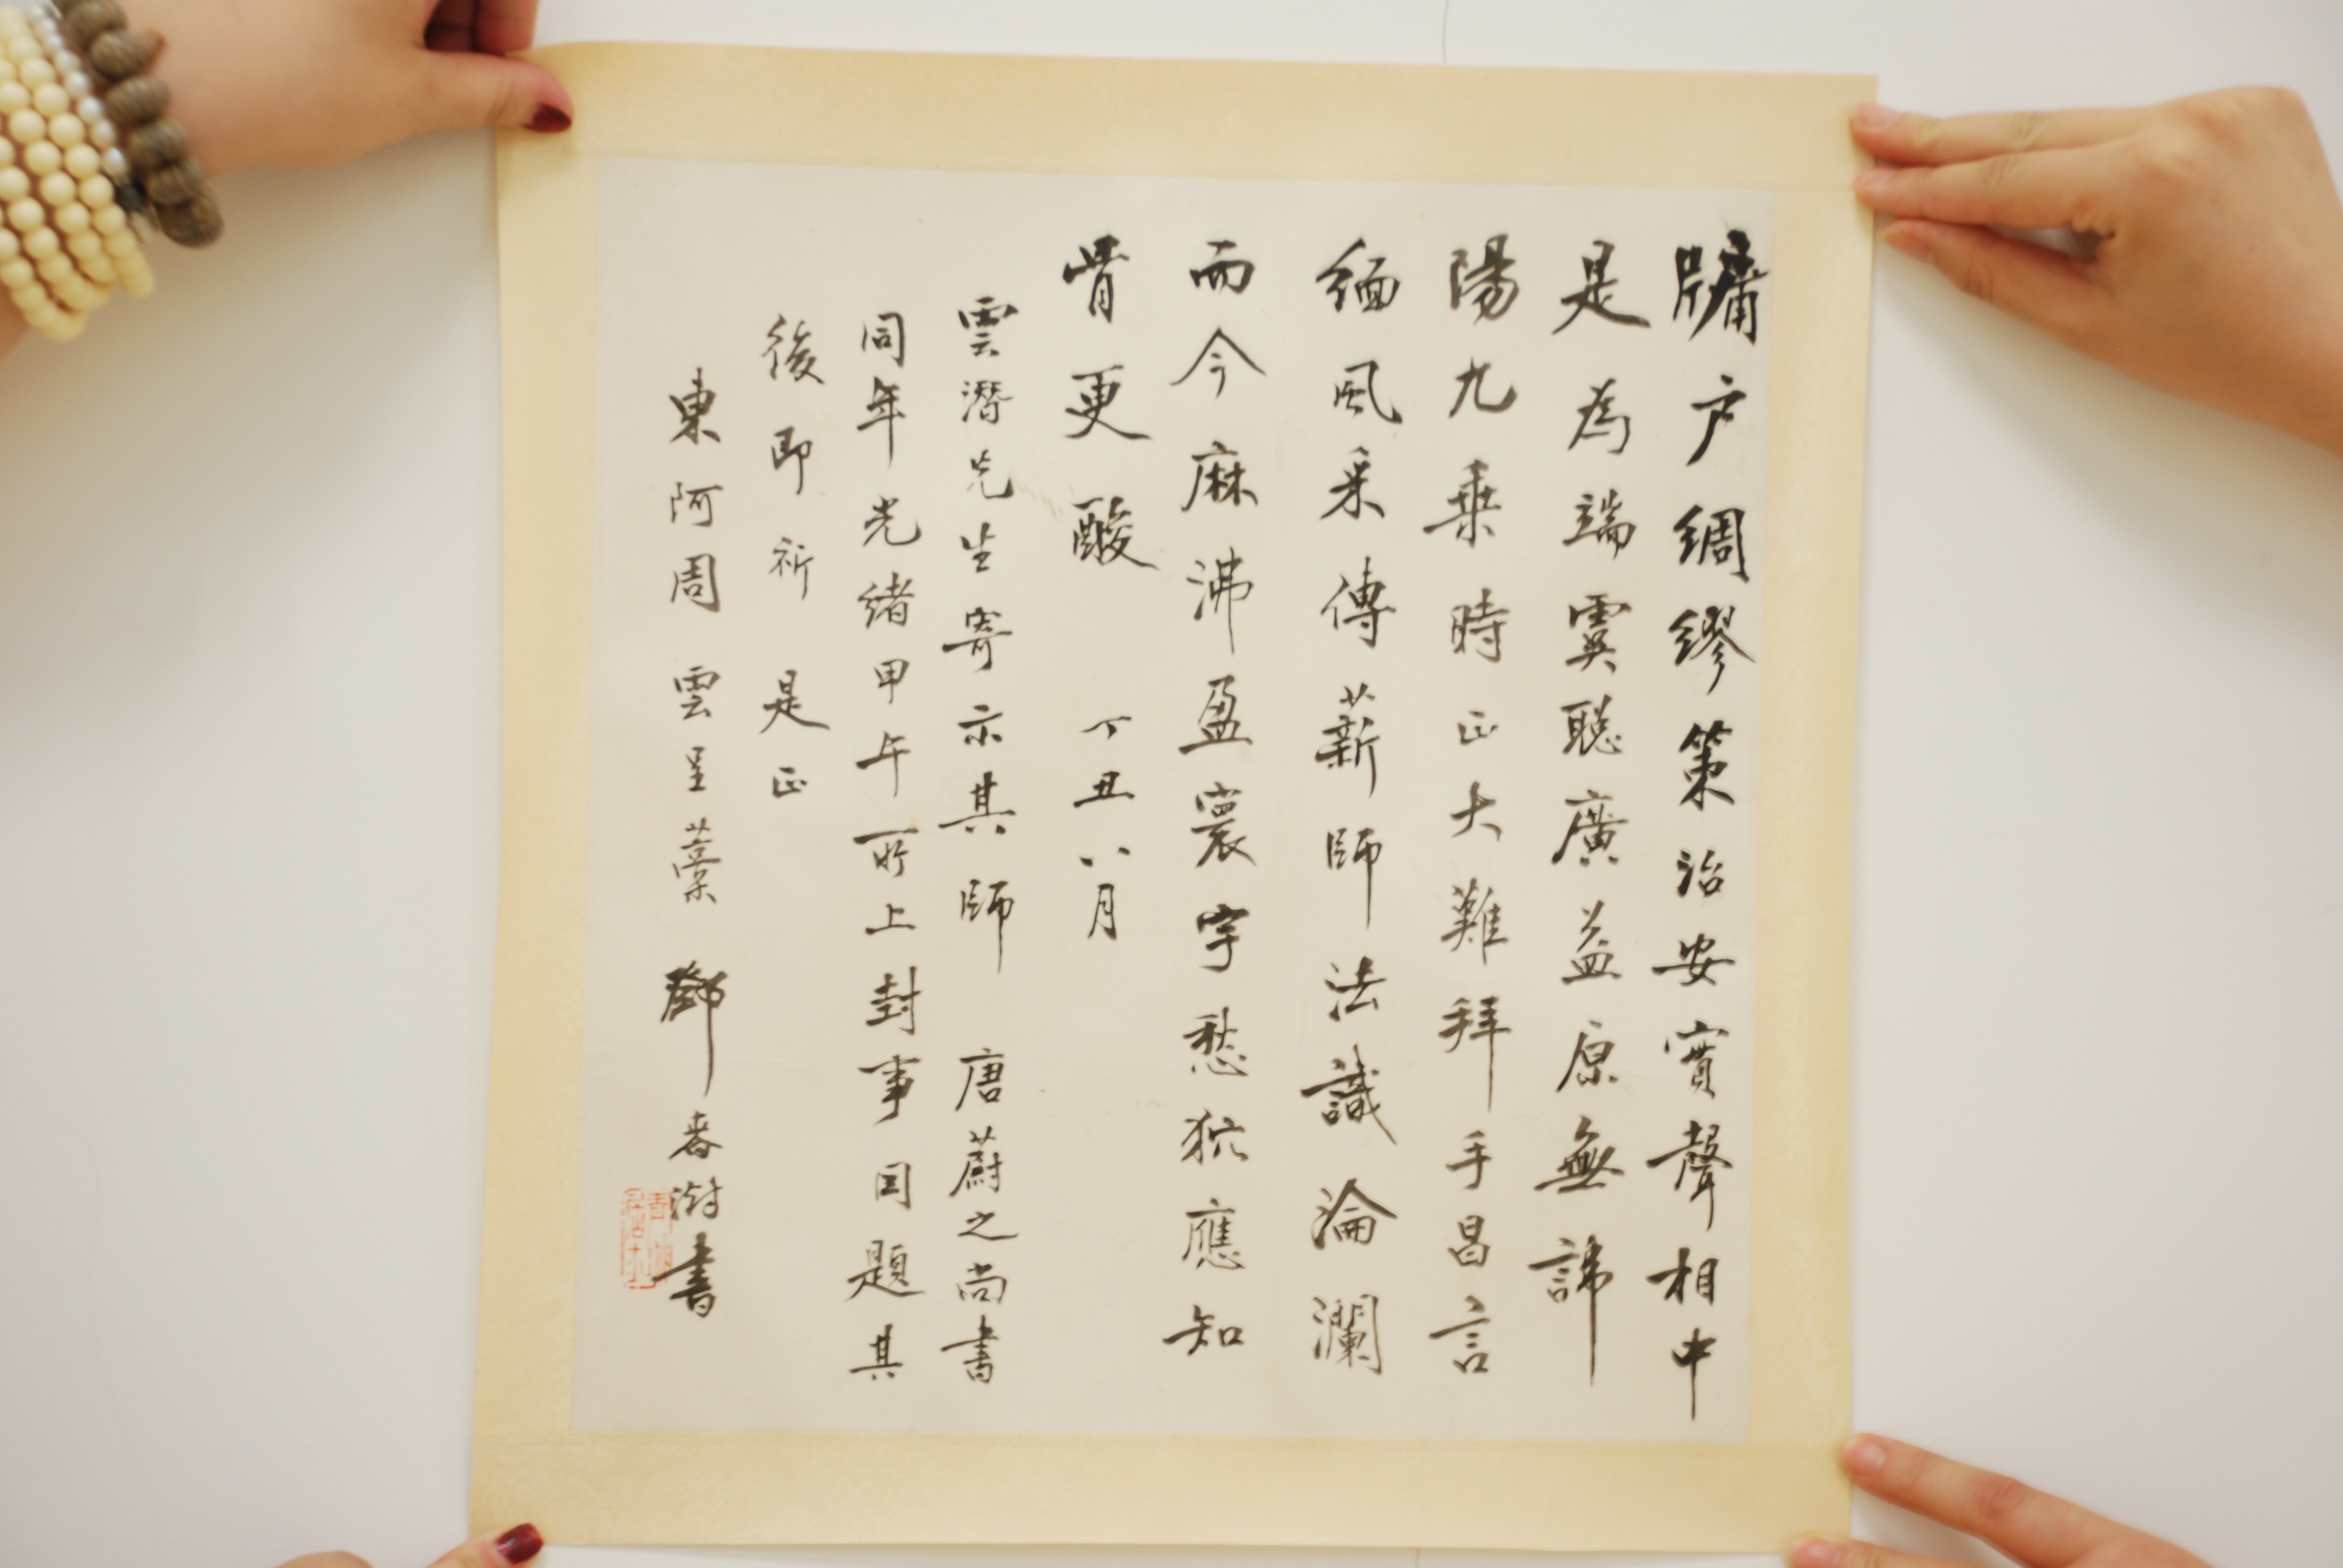 牖户綢繆策治安實聲相中
是為端虞聰廣益原無諱
陽九乘時正大難拜手昌言
緬風采傳薪師法識淪瀾
而今麻沸盈寰宇愁狖應知
骨更酸 丁丑八月
雲潛先生寄示其師 唐蔚之尚書
同年光緒甲午所上封事因題其
後即祈 是正
東阿周雲呈藁 鄧春澍書